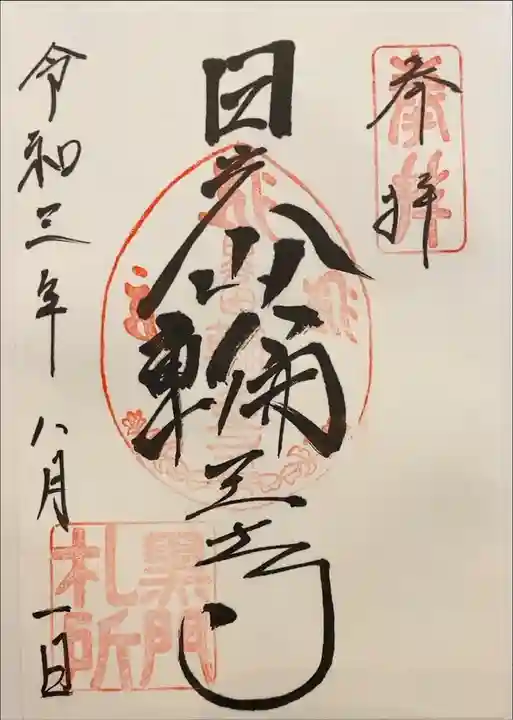 奉拝
奉拝
日光山輪王寺
令和三年八月一日
黒門
札所